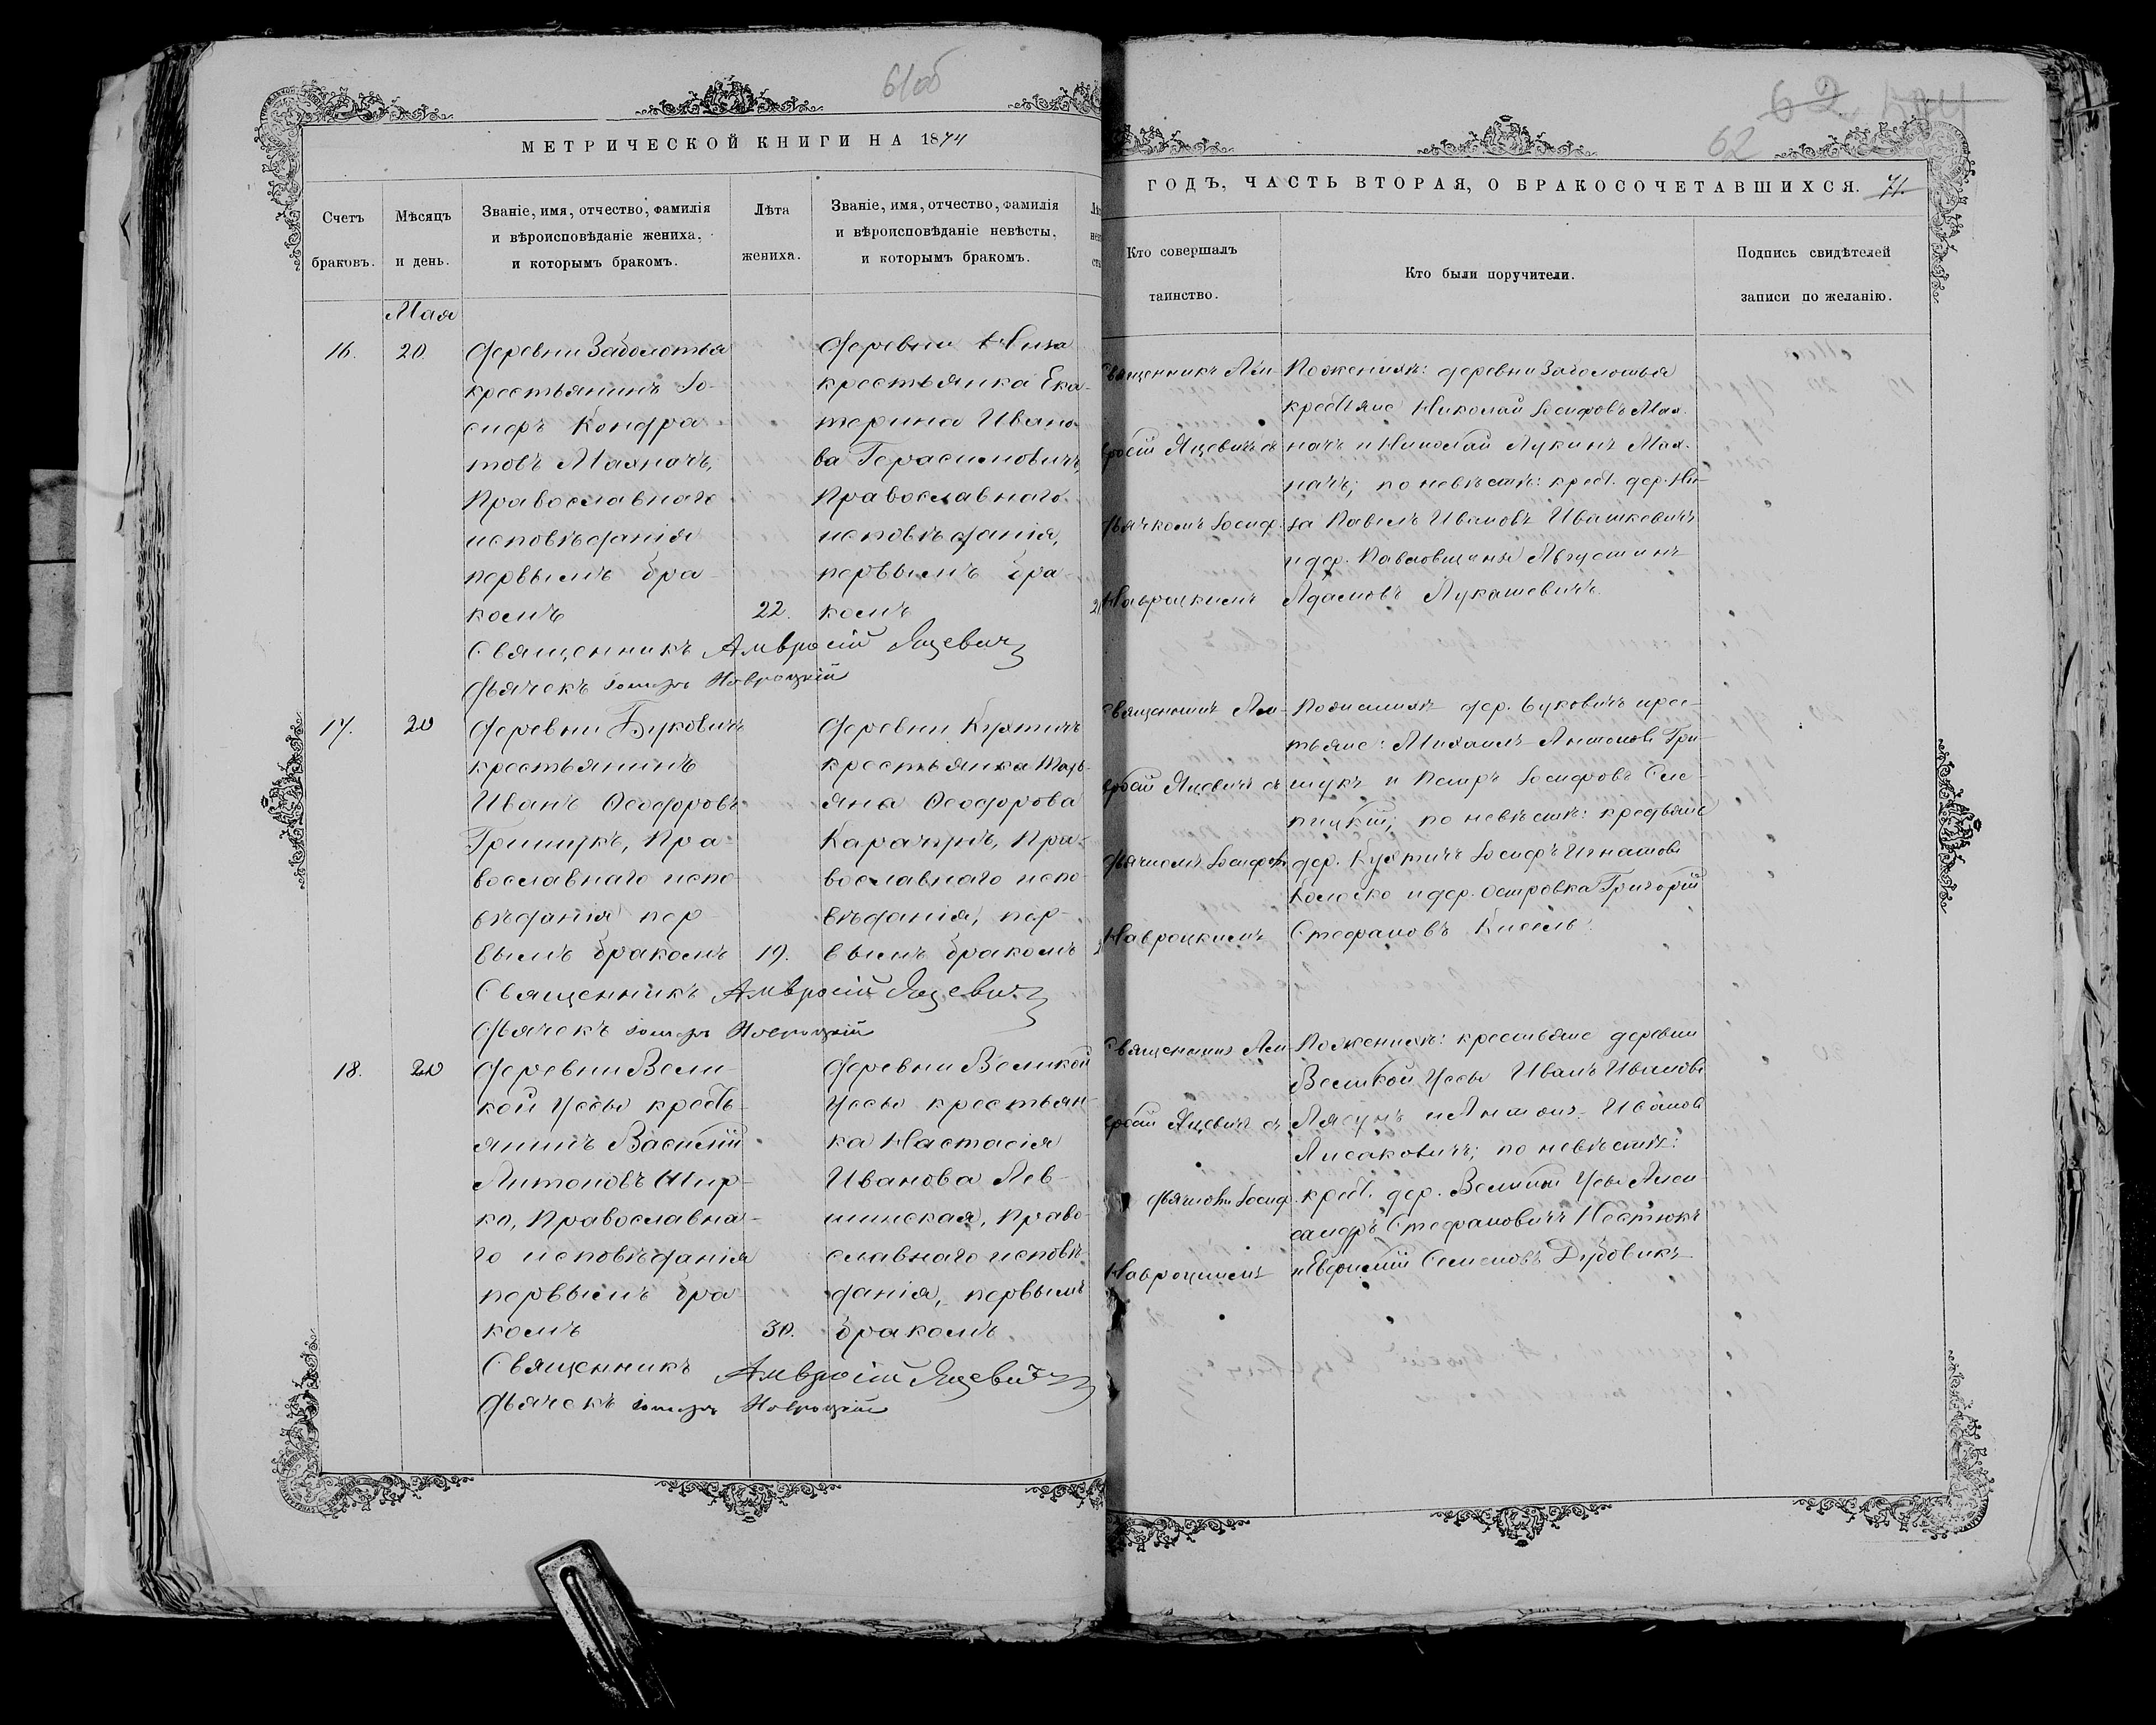 61об
МЕТРИЧЕСКОЙ КНИГИ НА 1874
Счетъ
браковъ.
Мѣсяцъ
и день.
Званіе, имя, отчество, фамилія
и вѣроисповѣданіе жениха,
и которымъ бракомъ.
Лѣта
жениха.
Званіе, имя, отчество, фамилія
и вѣроисповѣданіе невѣсты,
и которымъ бракомъ.
Мая
16.
20.
Деревни Заболотья
крестьянинъ Іо-
сифъ Кондра-
товъ Махначъ,
Православнаго
исповѣданія
первымъ бра-
комъ
22.
Деревни Низа
крестьянка Ека-
терина Ивано-
ва Герасимовичъ,
Православнаго
исповѣданія,
первымъ бра-
комъ
21
Священникъ Амвросій Яцевичъ
Дьячекъ Іосифъ Навроцкій
17.
20
Деревни Буковичъ
крестьянинъ
Иванъ Ѳеодоровъ
Гришукъ, Пра-
вославнаго испо-
вѣданія пер-
вымъ бракомъ
19.
Деревни Кухтичъ
крестьянка Тать-
яна Ѳеодорова
Карачунъ, Пра-
вославнаго испо-
вѣданія, пер-
вымъ бракомъ
Священникъ Амвросій Яцевичъ
Дьячекъ Іосифъ Навроцкій
18.
20
Деревни Вели-
кой Уссы кресть-
янинъ Василій
Антоновъ Шир-
ко, Православна-
го исповѣданія
первымъ бра-
комъ
30.
Деревни Великой
Уссы крестьян-
ка Настасія
Иванова Лев-
шинская, Право-
славнаго исповѣ-
данія, первымъ
бракомъ
Священникъ Амвросій Яцевичъ
Дьячекъ Іосифъ Навроцкій
62
62
ГОДЪ, ЧАСТЬ ВТОРАЯ, О БРАКОСОЧЕТАВШИХСЯ. 71.
Кто совершалъ
таинство.
Кто были поручители.
Подпись свидѣтелей
записи по желанію.
Священникъ Ам-
вросій Яцевичъ съ
дьячкомъ Іосиф.
Навроцкимъ
По женихѣ: деревни Заболотья
крестьяне Николай Іосифовъ Мах-
начъ и Николай Лукинъ Мах-
начъ; по невѣстѣ: крест. дер. Ни-
за Павелъ Ивановъ Ивашкевичъ
и дер. Павловщины Августинъ
Адамовъ Лукашевичъ.
Священникъ Ам-
вросій Яцевичъ съ
дьячкомъ Іосифомъ
Навроцкимъ
По женихѣ дер. Буковичъ крес-
тьяне: Михаилъ Антоновъ Гри-
шукъ и Петръ Іосифовъ Сле-
пицкій; по невѣстѣ: крестьяне
дер. Кухтичъ Іосифъ Игнатовъ
Колоско и дер. Островка Григорій
Стефановъ Кисель.
Священникъ Ам-
вросій Яцевичъ съ
дьячкомъ Іосиф.
Навроцкимъ
По женихѣ: крестьяне деревни
Великой Уссы Иванъ Ивановъ
Лясунъ и Антонъ Ивановъ
Лисаковичъ; по невѣстѣ:
крест. дер. Великой Усы Алек-
сандръ Стефановичъ Нестюкъ
и Евфимій Семеновъ Дубовикъ